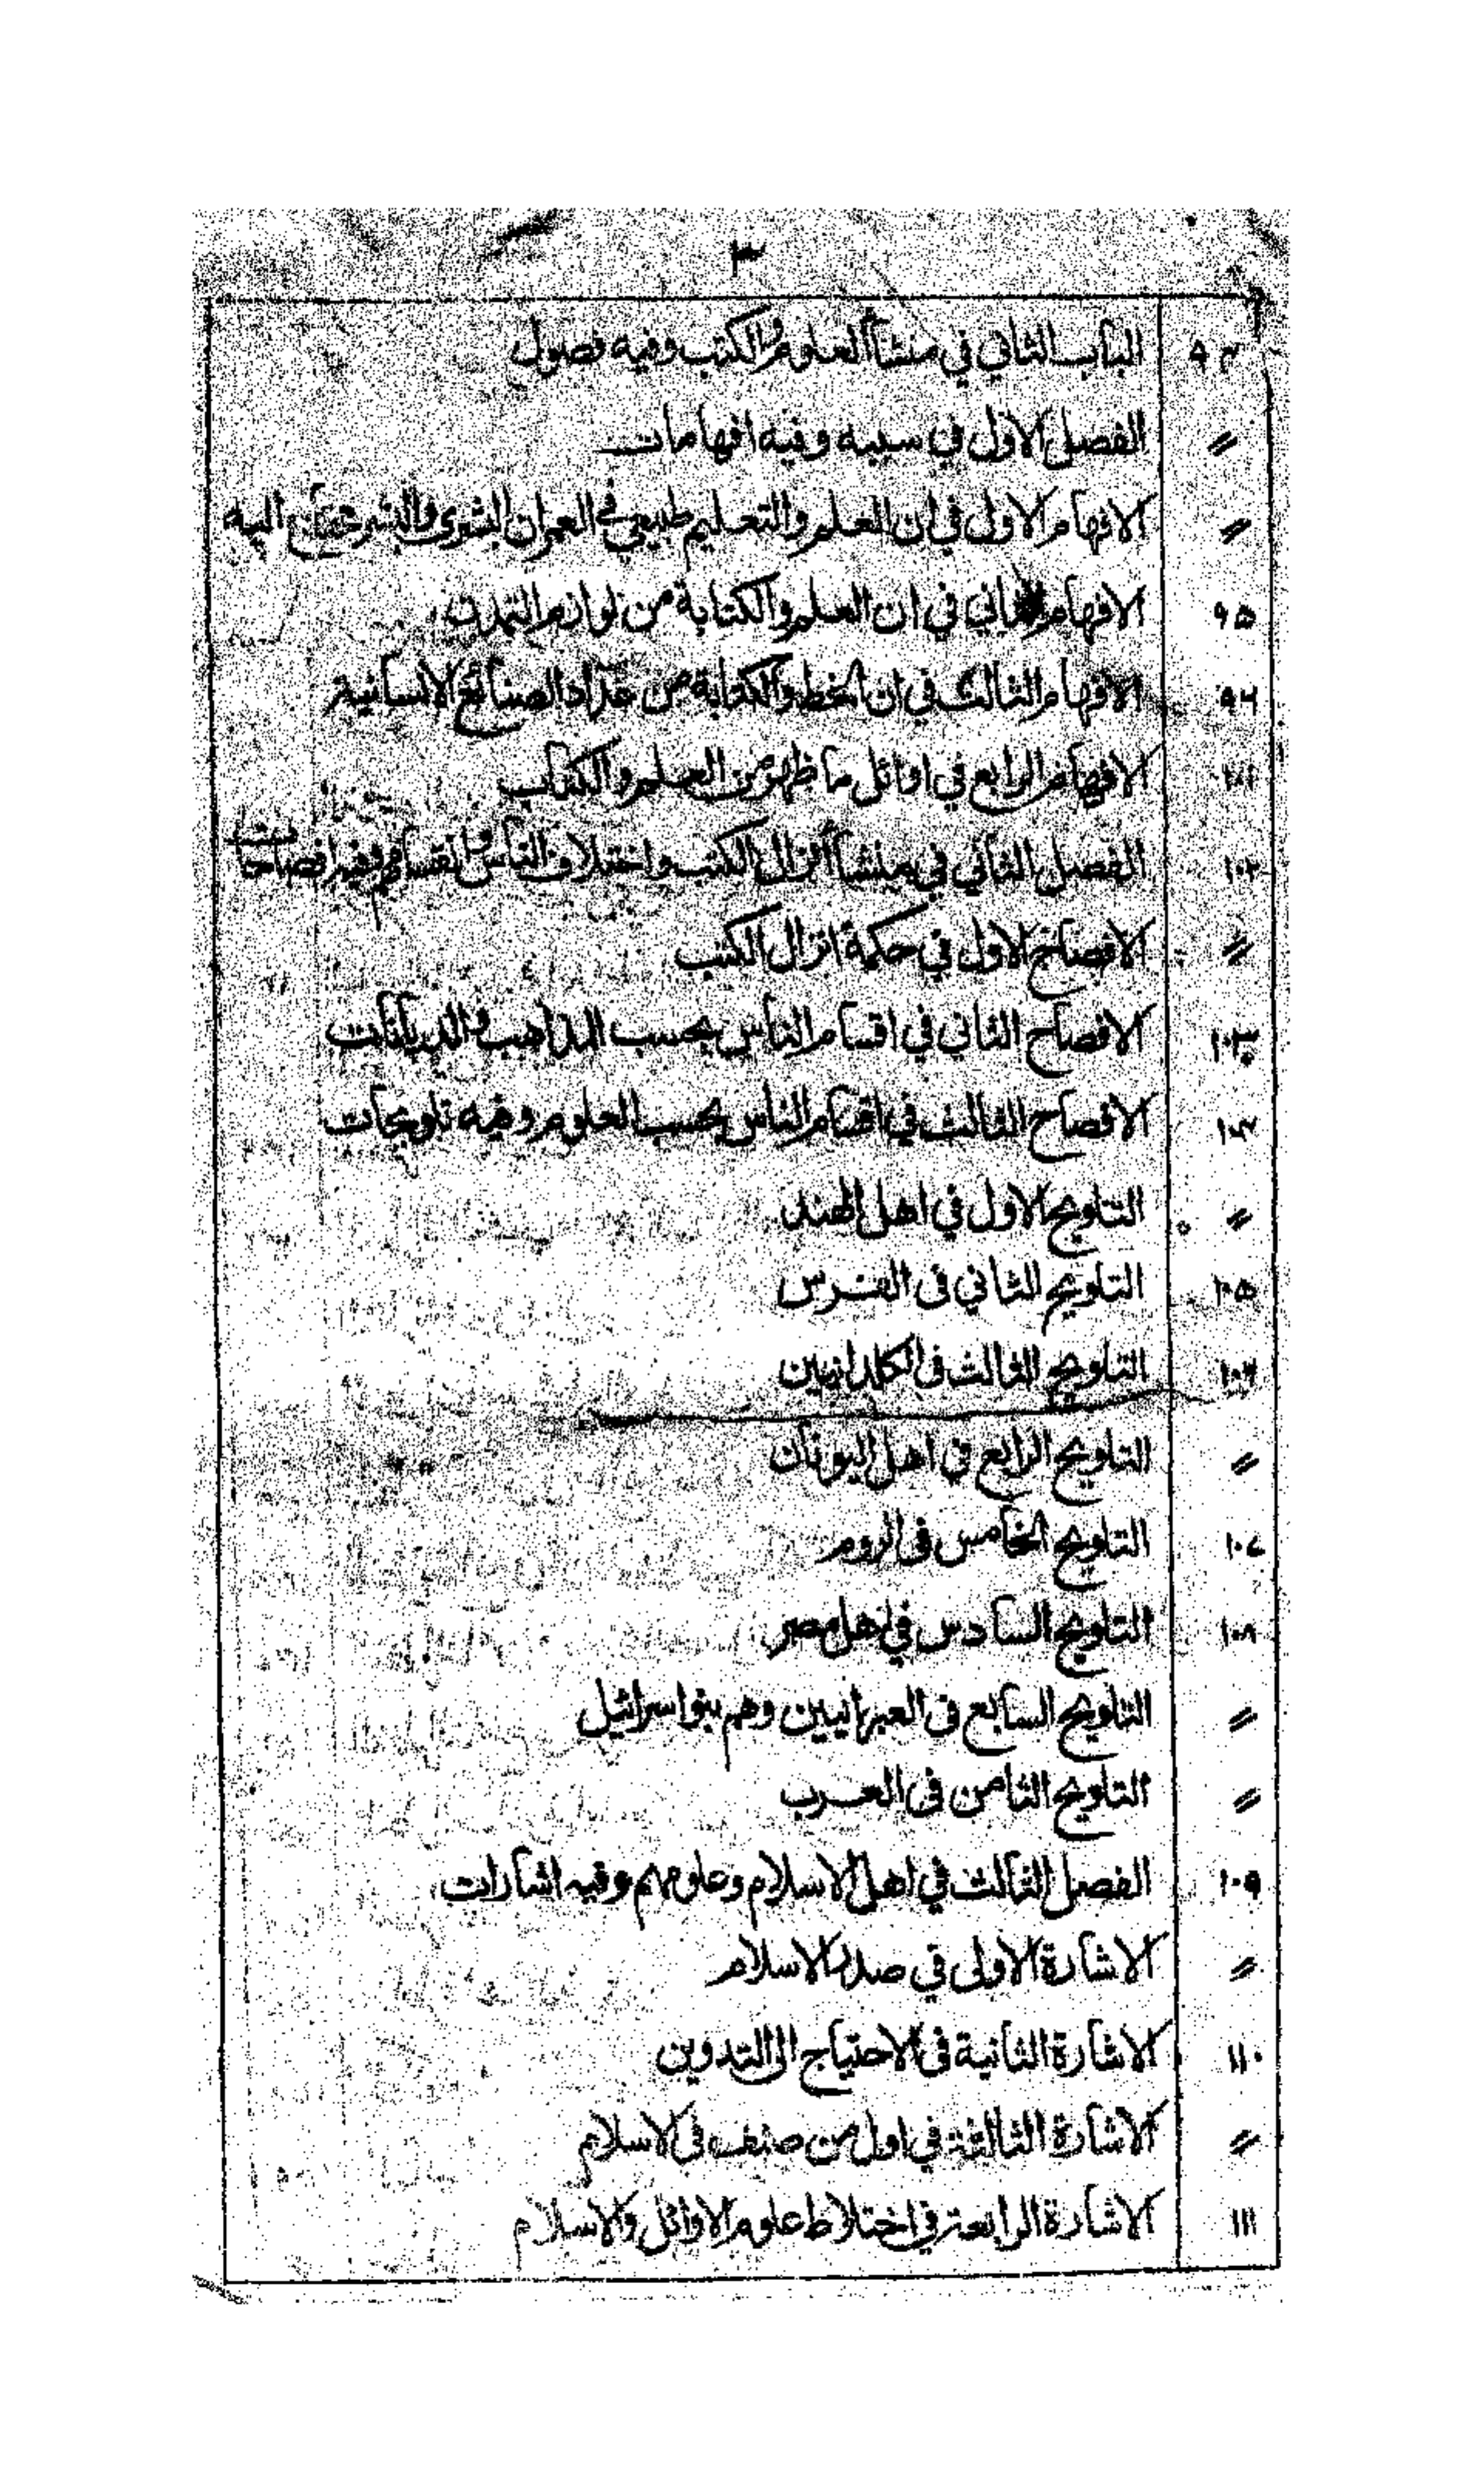 ٣
٩٣ الباب الثاني في منشأ العلوم والكتب وفيه فصول
〃 الفصل الاول في سببه وفيه افهامات
〃 الافهام الاول في ان العلم والتعليم طبيعي في العمران البشري والبشر محتاج اليه
٩٥ الافهام الثاني في ان العلم والكتابة من لوازم التمدن
٩٦ الافهام الثالث في ان الخط والكتابة من عداد الصنائع الانسانية
الافهام الرابع في اوائل ما ظهر من العلم والكتاب
١٠٢ الفصل الثاني في منشأ انزال الكتب واختلاف الناس وانقسامهم وفيه افصاحات
〃 الافصاح الاول في حكمة انزال الكتب
١٠٣ الافصاح الثاني في اقسام الناس بحسب المذاهب والديانات
١٠٤ الافصاح الثالث في اقسام الناس بحسب العلوم وفيه تلويحات
〃 التلويح الاول في اهل الهند
١٠٥ التلويح الثاني فى الفرس
١٠٦ التلويح الثالث فى الكلدانيين
〃 التلويح الرابع في اهل اليونان
١٠٧ التلويح الخامس فى الروم
١٠٨ التلويح السادس في اهل مصر
〃 التلويح السابع فى العبرانيين وهم بنو اسرائيل
〃 التلويح الثامن فى العرب
١٠٩ الفصل الثالث في اهل الاسلام وعلومهم وفيه اشارات
〃 الاشارة الاولى في صدر الاسلام
١١٠ الاشارة الثانية فى الاحتياج الى التدوين
〃 الاشارة الثالثة في اول من صنف فى الاسلام
١١١ الاشارة الرابعة في اختلاط علوم الاوائل والاسلام